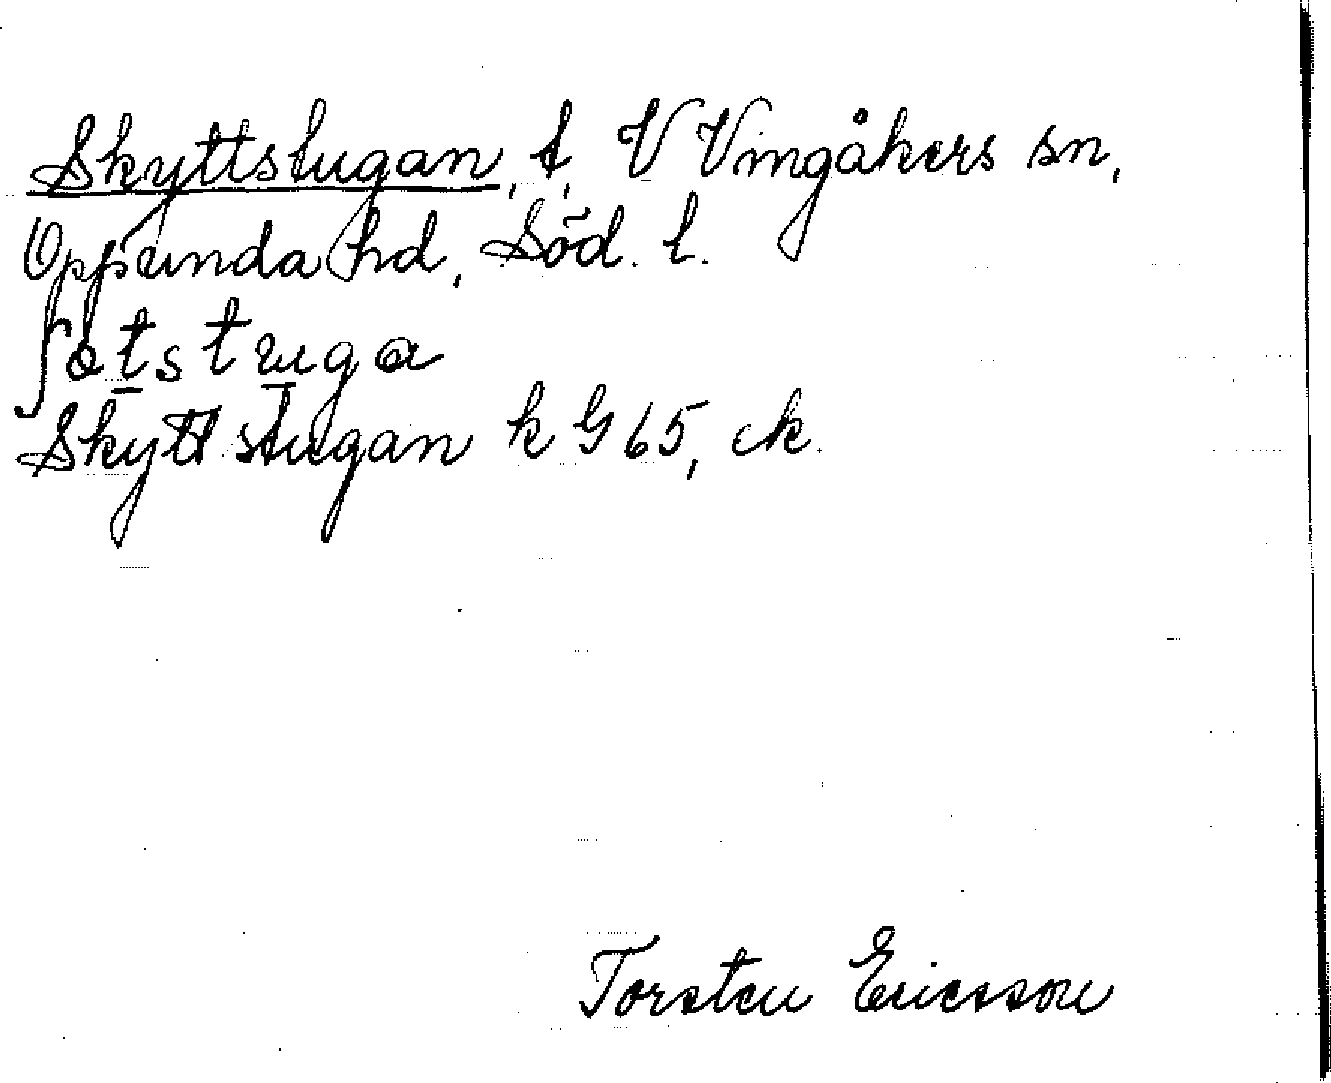 Skyttstugan, t, V Vingåkers sn,
Oppunda hd, Söd. l.
ʃøtstuga
Skyttstugan k G 65, ck
Torsten Ericsson